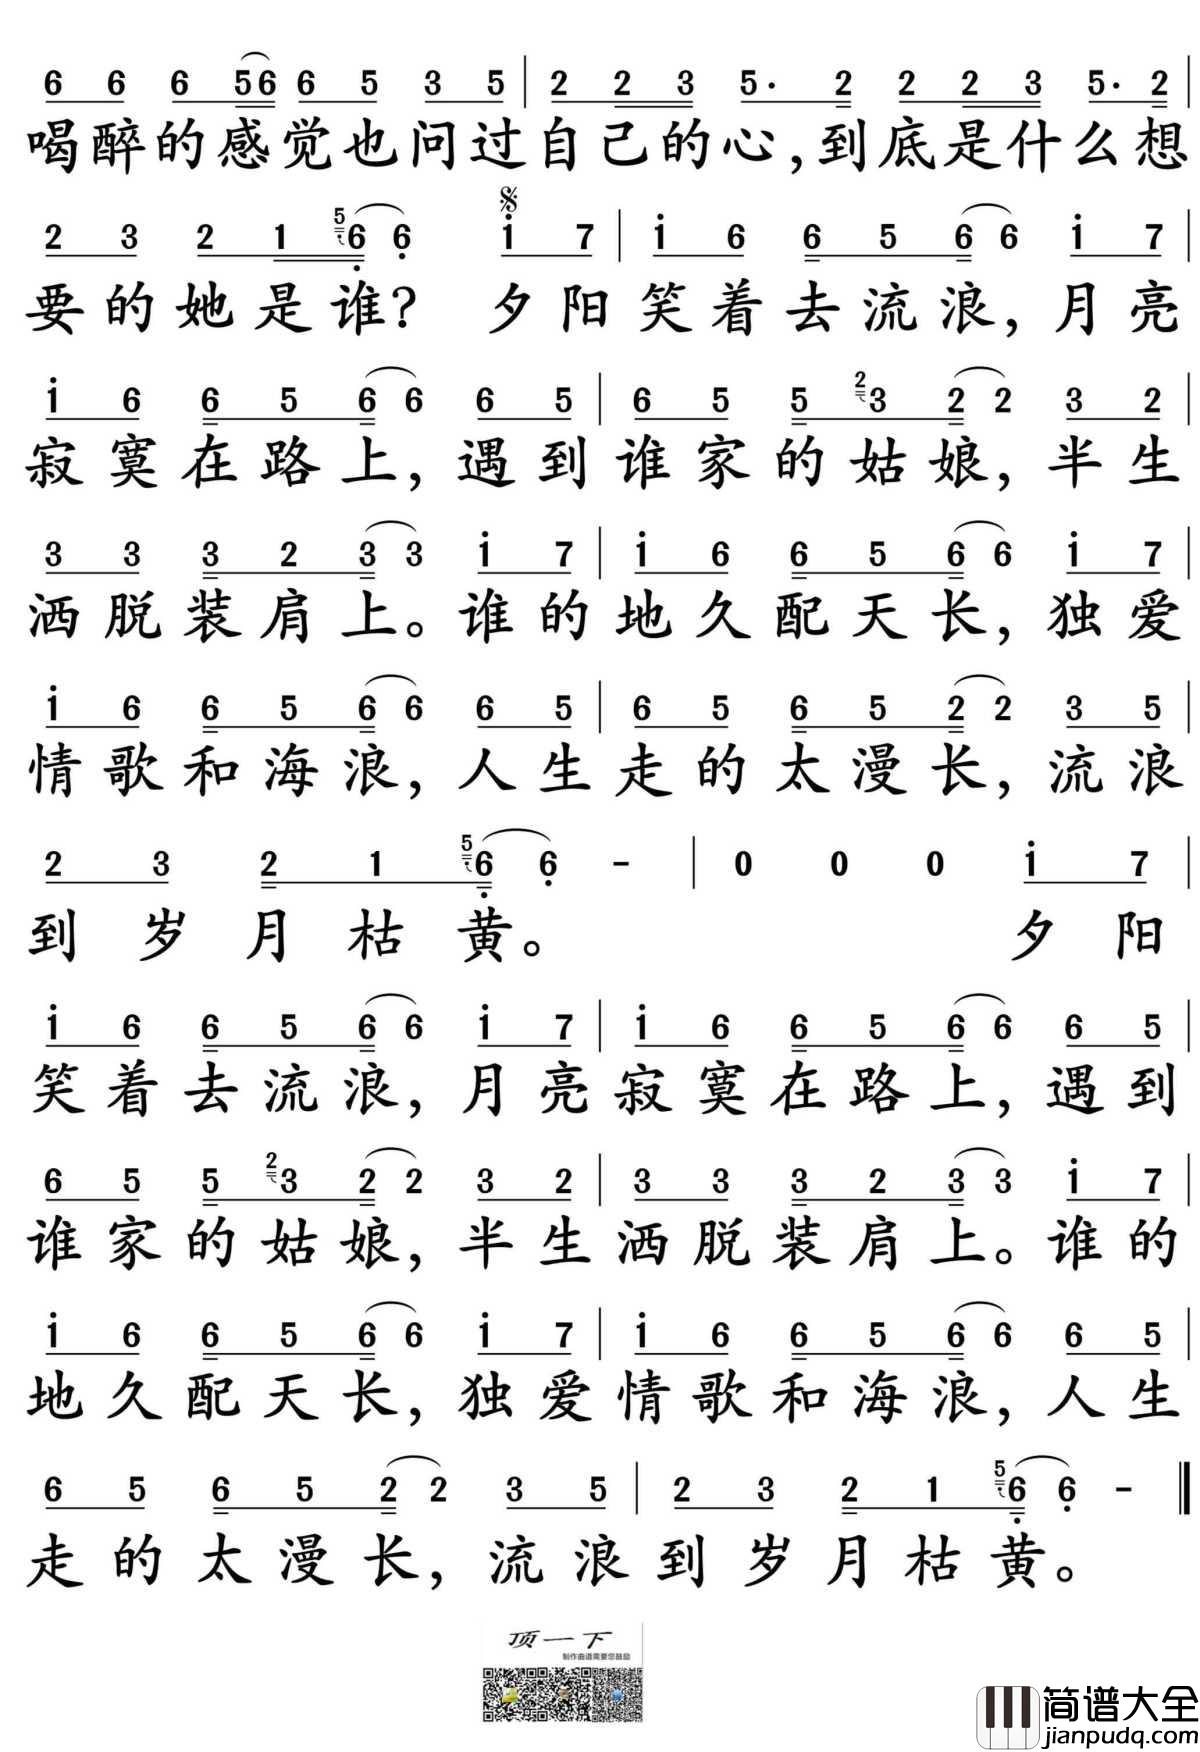 6 6 6 5 6 6 5 3 5 | 2 2 3 5· 2 2 2 3 5· 2 |
喝醉的感觉也问过自己的心,到底是什么想
2 3 2 1 5 6 6 i 7 | i 6 6 5 6 6 i 7 |
要的她是谁? 夕阳笑着去流浪,月亮
i 6 6 5 6 6 6 5 | 6 5 5 2 3 2 2 3 2 |
寂寞在路上,遇到谁家的姑娘,半生
3 3 3 2 3 3 i 7 | i 6 6 5 6 6 i 7 |
洒脱装肩上。谁的地久配天长,独爱
i 6 6 5 6 6 6 5 | 6 5 6 5 2 2 3 5 |
情歌和海浪,人生走的太漫长,流浪
2 3 2 1 5 6 6 - | 0 0 0 i 7 |
到岁月枯黄。 夕阳
i 6 6 5 6 6 i 7 | i 6 6 5 6 6 6 5 |
笑着去流浪,月亮寂寞在路上,遇到
6 5 5 2 3 2 2 3 2 | 3 3 3 2 3 3 i 7 |
谁家的姑娘,半生洒脱装肩上。谁的
i 6 6 5 6 6 i 7 | i 6 6 5 6 6 6 5 |
地久配天长,独爱情歌和海浪,人生
6 5 6 5 2 2 3 5 | 2 3 2 1 5 6 6 - ‖
走的太漫长,流浪到岁月枯黄。
顶一下
制作曲谱需要您鼓励
简谱大全
jianpudq.com